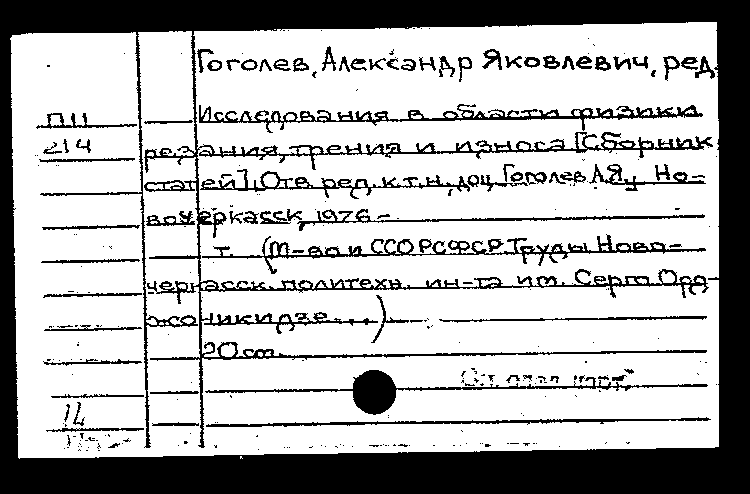 Гоголев, Александр Яковлевич, ред.
П11 Исследования в области физики
214 резания, трения и износа [Сборник
статей]. Отв. ред. к.т.н., доц. Гоголев А.Я., Но-
вочеркасск, 1976 -
т. (М-во и ССО РСФСР. Труды Ново-
черкасск. политехн. ин-та им. Серго Орд-
жоникидзе...)
20 см.
14